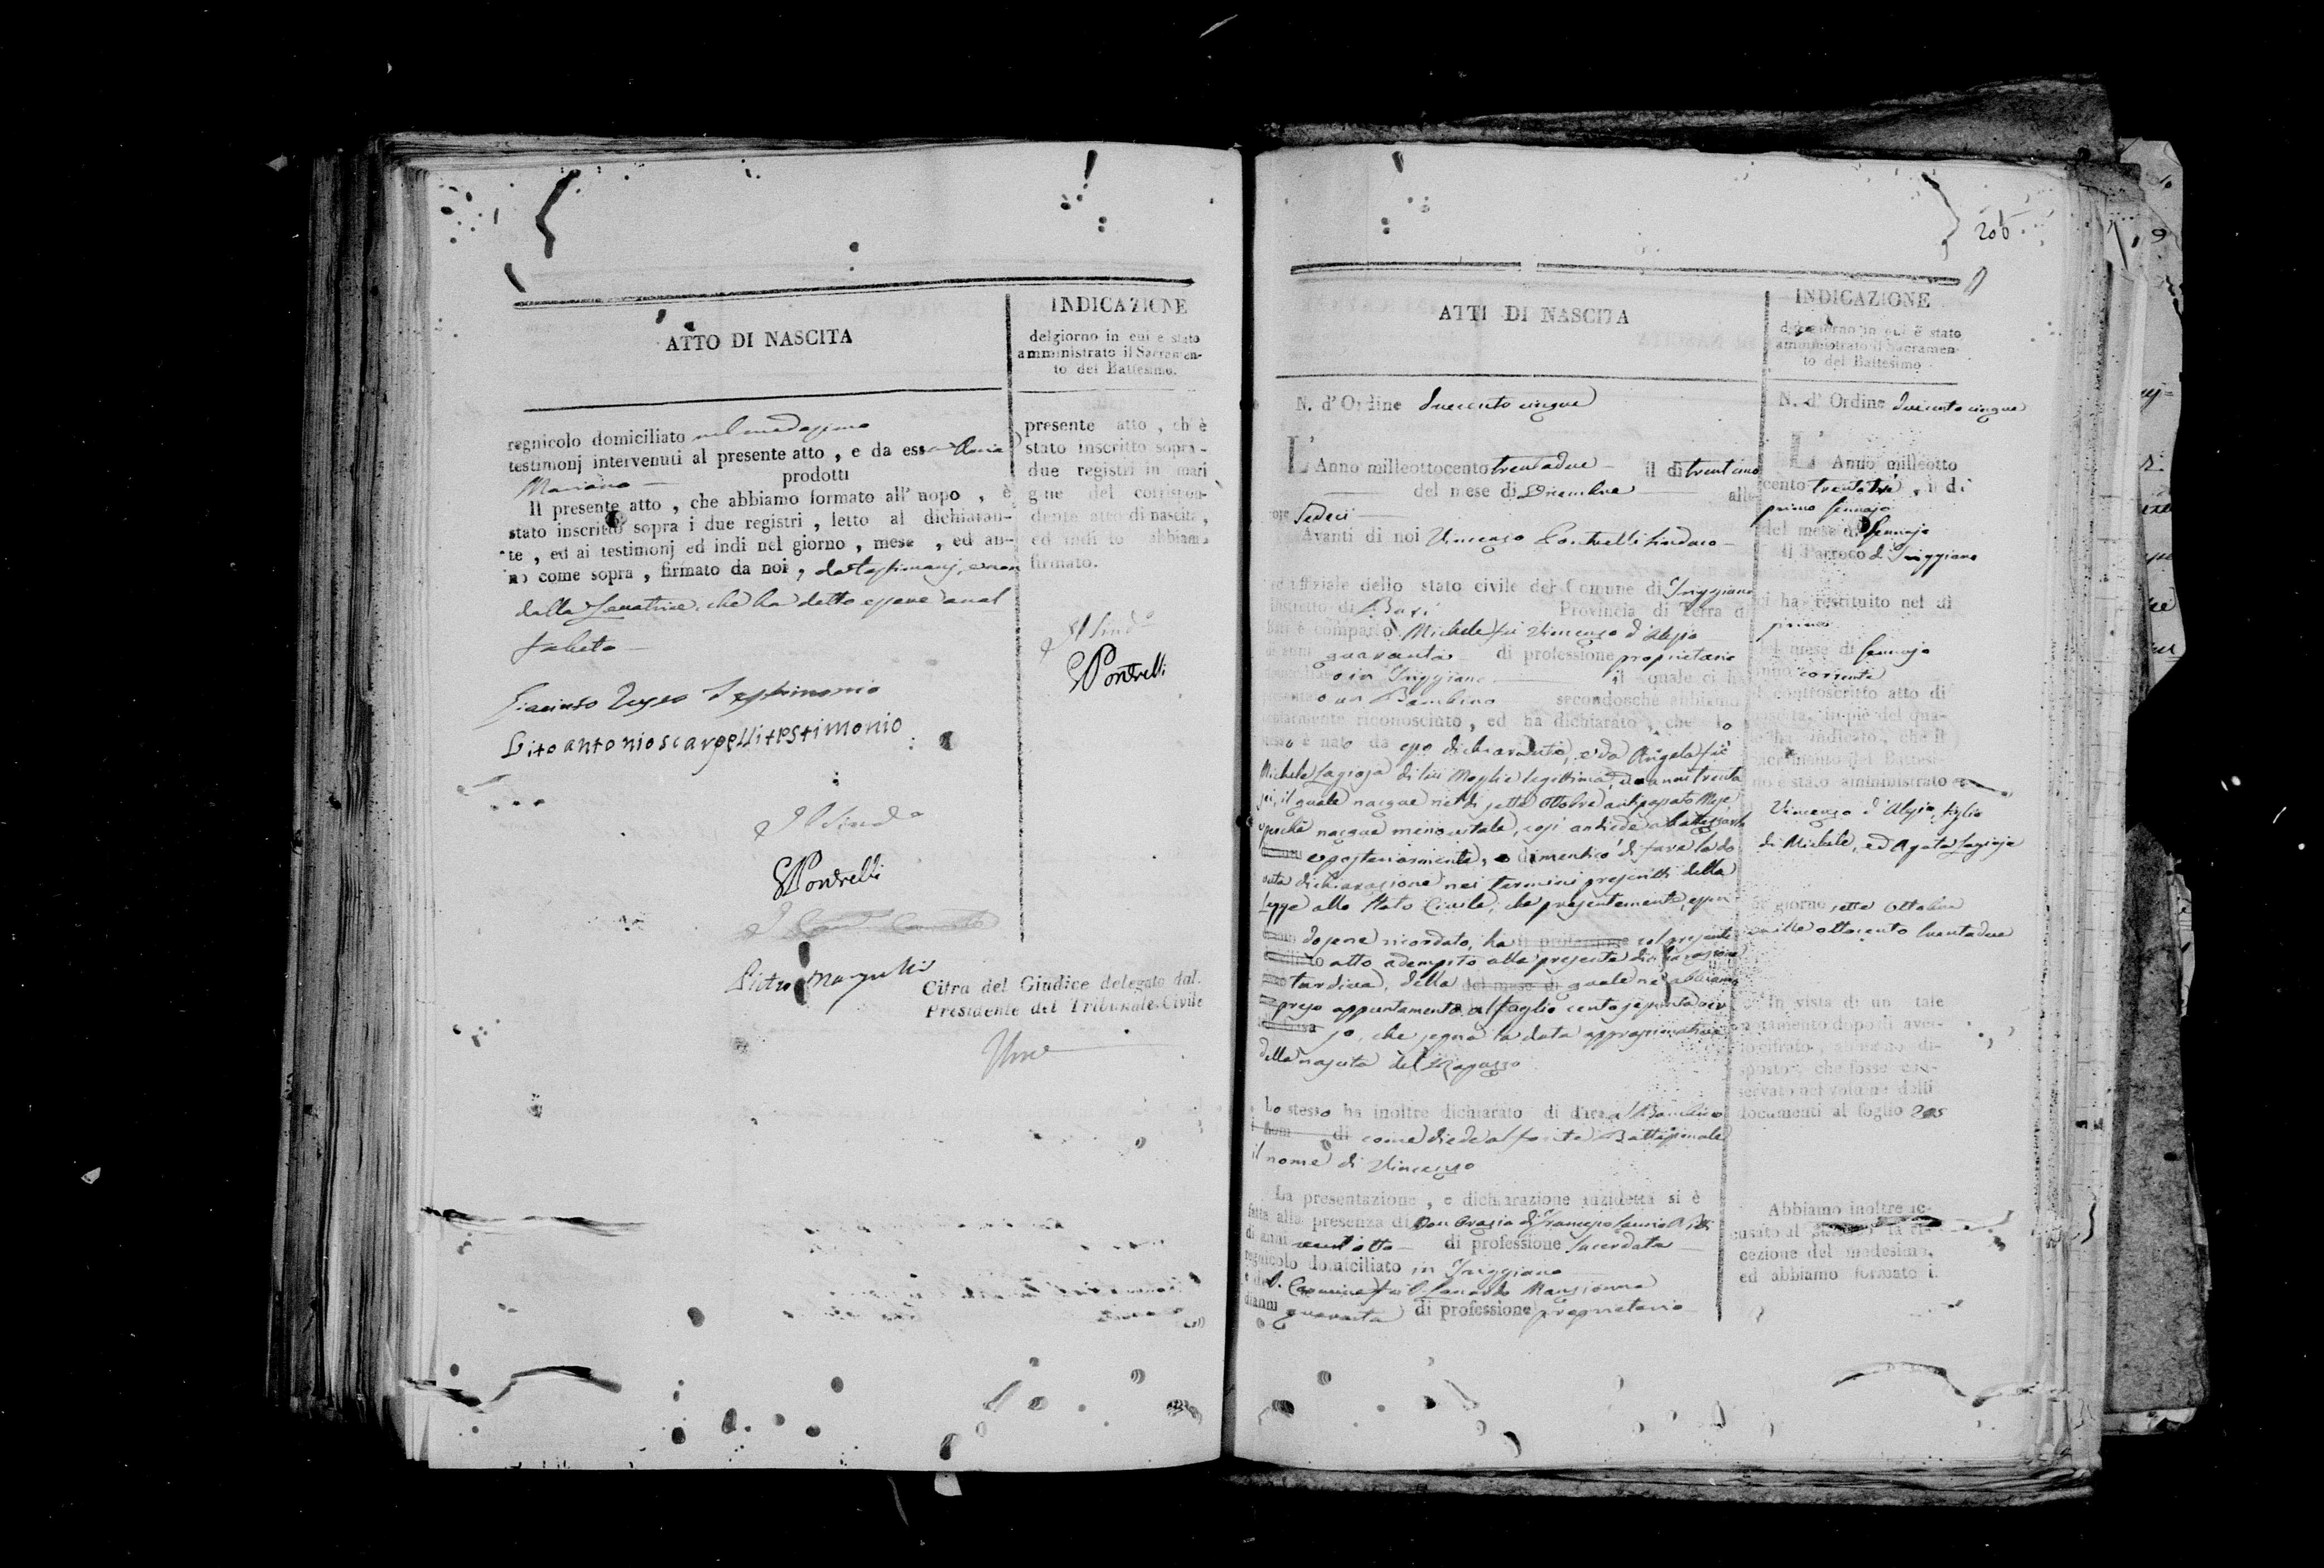 ATTO DI NASCITA
regnicolo domiciliato nel medesimo
testimonj intervenuti al presente atto , e da essa Anna
Mariana prodotti
Il presente atto , che abbiamo formato all' uopo , è
stato inscritto sopra i due registri , letto al dichiaran-
te , ed ai testimonj ed indi nel giorno , mese , ed an-
no come sopra , firmato da noi , da testimonj, e non
dalla Levatrice, che ha detto essere anal
fabeta
Testimonio
Vito antonio scarpelli testimonio
Il Sind.o
Pontrelli
Cifra del Giudice delegato dal
Presidente del Tribunale Civile
INDICAZIONE
del giorno in cui è stato
amministrato il Sacramen-
to del Battesimo.
presente atto , ch' è
stato inscritto sopra-
due registri in mari
gine del corrispon-
dente atto di nascita ,
ed indi lo abbiamo
firmato.
Il Sind.o
Pontrelli
206
ATTI DI NASCITA
N. d' Ordine duecento cinque
L' Anno milleottocento trentadue il dì trentuno
del mese di Dicembre alle
ore Sedeci
Avanti di noi Vincenzo Pontrelli Sindaco
ed uffiziale dello stato civile del Comune di Triggiano
Distretto di Bari Provincia di Terra di
Bari è comparso Michele fu Vincenzo d'Alesio
di anni quaranta di professione proprietario
domiciliato in Triggiano il quale ci ha
presentato un Bambino secondochè abbiamo
ocularmente riconosciuto , ed ha dichiarato , che lo
stesso è nato da esso dichiarante, e da Angela fu
Michele Lagioja di lui Moglie legittima, di anni trenta
sei, il quale nacque nel dì sette Ottobre antipassato Mese,
e perchè nacque menovitale, così andiede a battezzarlo
e posteriormente, e dimenticò di fare la do
vuta dichiarazione nei termini prescritti della
Legge allo Stato Civile, che presentemente, essen
dosene ricordato, ha col presente
atto adempito alla presente dichiarazione
tardiva, della quale ne abbiamo
preso appuntamento al foglio cento sessanta
che segna la data approssimativa
della nascita del Ragazzo
Lo stesso ha inoltre dichiarato di dare al Bambino
come diede al fonte Battesimale
il nome di Vincenzo
La presentazione , e dichiarazione anzidetta si è
fatta alla presenza di Don Orazio di Francesco Saverio
di anni ventotto di professione Sacerdote
regnicolo domiciliato in Triggiano
e di D. Carmine fu D. Leonardo
di anni quaranta di professione proprietario
INDICAZIONE
del giorno in cui è stato
amministrato il Sacramen-
to del Battesimo
N. d' Ordine duecento cinque
L' Anno milleotto
cento trentatrè , il dì
primo Gennajo
del mese di Gennajo
Il Parroco di Triggiano
ci ha restituito nel dì
primo
del mese di Gennajo
anno corrente
il controscritto atto di
nascita, in piè del qua-
le ha indicato, che il
Sacramento del Battesi-
mo è stato amministrato a
Vincenzo d'Alesio, figlio
di Michele, ed Agata Lagioja
nel giorno sette Ottobre
mille ottocento trentadue
In vista di un tale
notamento dopo di aver-
lo cifrato, abbiamo di-
sposto, che fosse con-
servato nel volume delli
documenti al foglio 205
Abbiamo inoltre ac-
cusato al Parroco la ri-
cezione del medesimo,
ed abbiamo formato i.